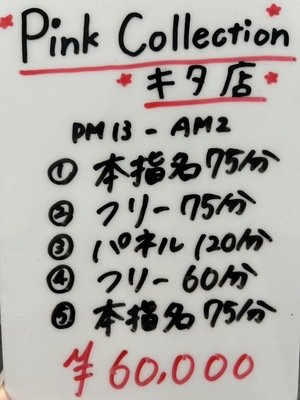 Pink Collection
キタ店
PM13-AM2
① 本指名75分
② フリー75分
③ パネル120分
④ フリー60分
⑤ 本指名75分
¥60,000